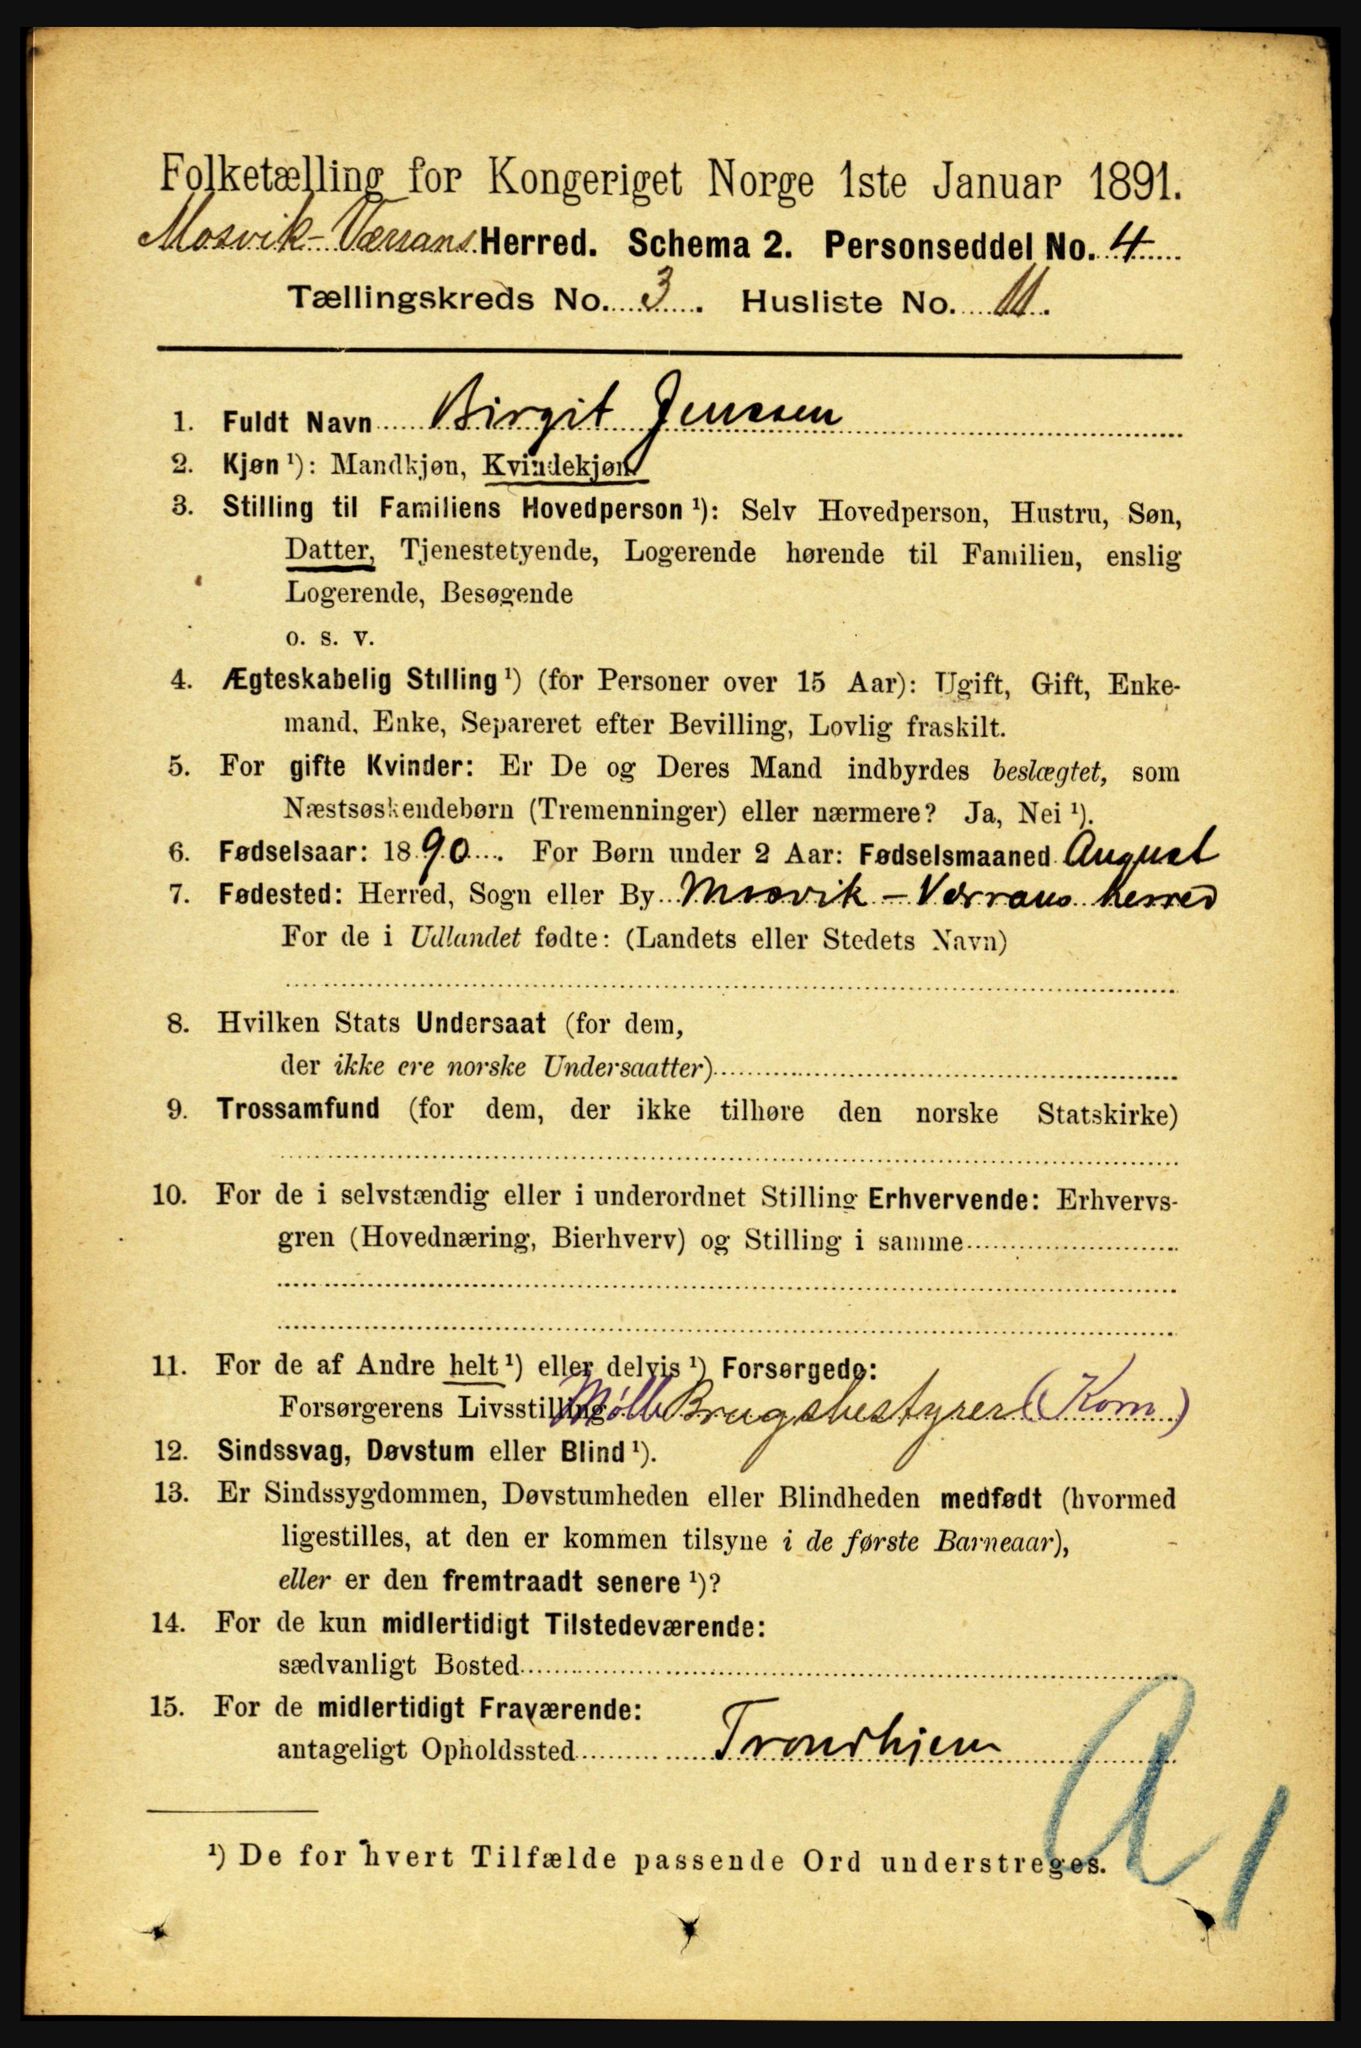 Folketælling for Kongeriget Norge 1ste Januar 1891.
Mosvik-Værrans Herred. Schema 2. Personseddel No. 4
Tællingskreds No. 3. Husliste No. 11.
1. Fuldt Navn Birgit Jenssen
2. Kjøn ¹): Mandkjøn, Kvindekjøn
3. Stilling til Familiens Hovedperson ¹): Selv Hovedperson, Hustru, Søn,
Datter, Tjenestetyende, Logerende hørende til Familien, enslig
Logerende, Besøgende
o. s. v.
4. Ægteskabelig Stilling ¹) (for Personer over 15 Aar): Ugift, Gift, Enke-
mand, Enke, Separeret efter Bevilling, Lovlig fraskilt.
5. For gifte Kvinder: Er De og Deres Mand indbyrdes beslægtet, som
Næstsøskendebørn (Tremenninger) eller nærmere? Ja, Nei ¹).
6. Fødselsaar: 1890. For Børn under 2 Aar: Fødselsmaaned August
7. Fødested: Herred, Sogn eller By Mosvik - Verrans herred
For de i Udlandet fødte: (Landets eller Stedets Navn)
8. Hvilken Stats Undersaat (for dem,
der ikke ere norske Undersaatter)
9. Trossamfund (for dem, der ikke tilhøre den norske Statskirke)
10. For de i selvstændig eller i underordnet Stilling Erhvervende: Erhvervs-
gren (Hovednæring, Bierhverv) og Stilling i samme
11. For de af Andre helt ¹) eller delvis ¹) Forsørgede:
Forsørgerens Livsstilling Mølle Brugsbestyrer (Kom)
12. Sindssvag, Døvstum eller Blind ¹).
13. Er Sindssygdommen, Døvstumheden eller Blindheden medfødt (hvormed
ligestilles, at den er kommen tilsyne i de første Barneaar),
eller er den fremtraadt senere ¹)?
14. For de kun midlertidigt Tilstedeværende:
sædvanligt Bosted
15. For de midlertidigt Fraværende:
antageligt Opholdssted Trondhjem
A1
¹) De for hvert Tilfælde passende Ord understreges.